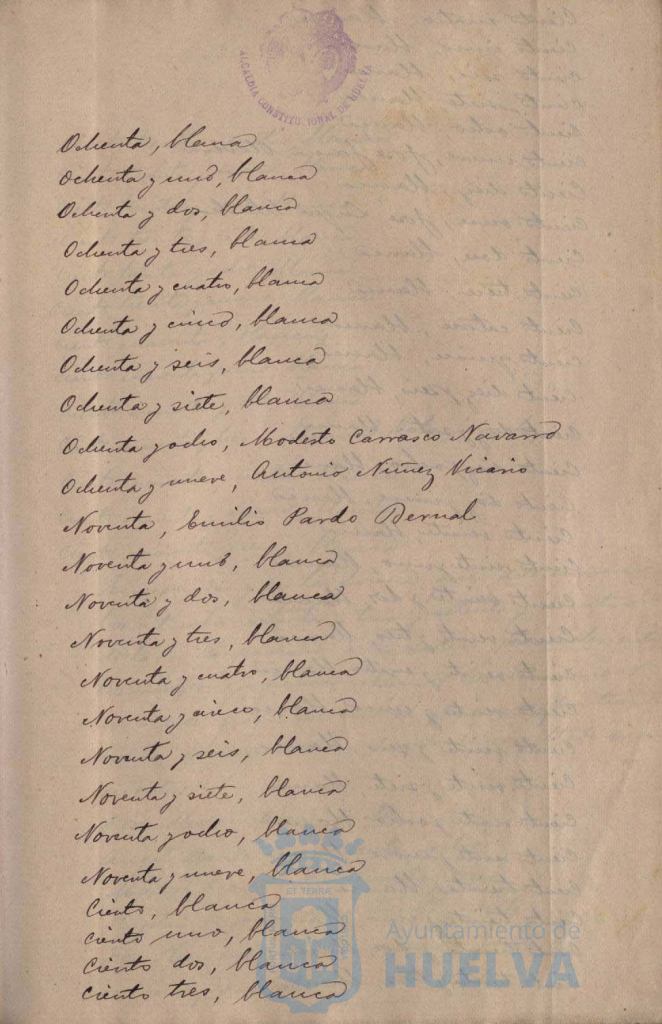 ALCALDIA CONSTITUCIONAL DE HUELVA
Ochenta, blanca
Ochenta y uno, blanca
Ochenta y dos, blanca
Ochenta y tres, blanca
Ochenta y cuatro, blanca
Ochenta y cinco, blanca
Ochenta y seis, blanca
Ochenta y siete, blanca
Ochenta y ocho, Modesto Carrasco Navarro
Ochenta y nueve, Antonio Nuñez Vicario
Noventa, Emilio Pardo Bernal
Noventa y uno, blanca
Noventa y dos, blanca
Noventa y tres, blanca
Noventa y cuatro, blanca
Noventa y cinco, blanca
Noventa y seis, blanca
Noventa y siete, blanca
Noventa y ocho, blanca
Noventa y nueve, blanca
Ciento, blanca
Ciento uno, blanca
Ciento dos, blanca
Ciento tres, blanca
ET TERRÆ
Ayuntamiento de
HUELVA